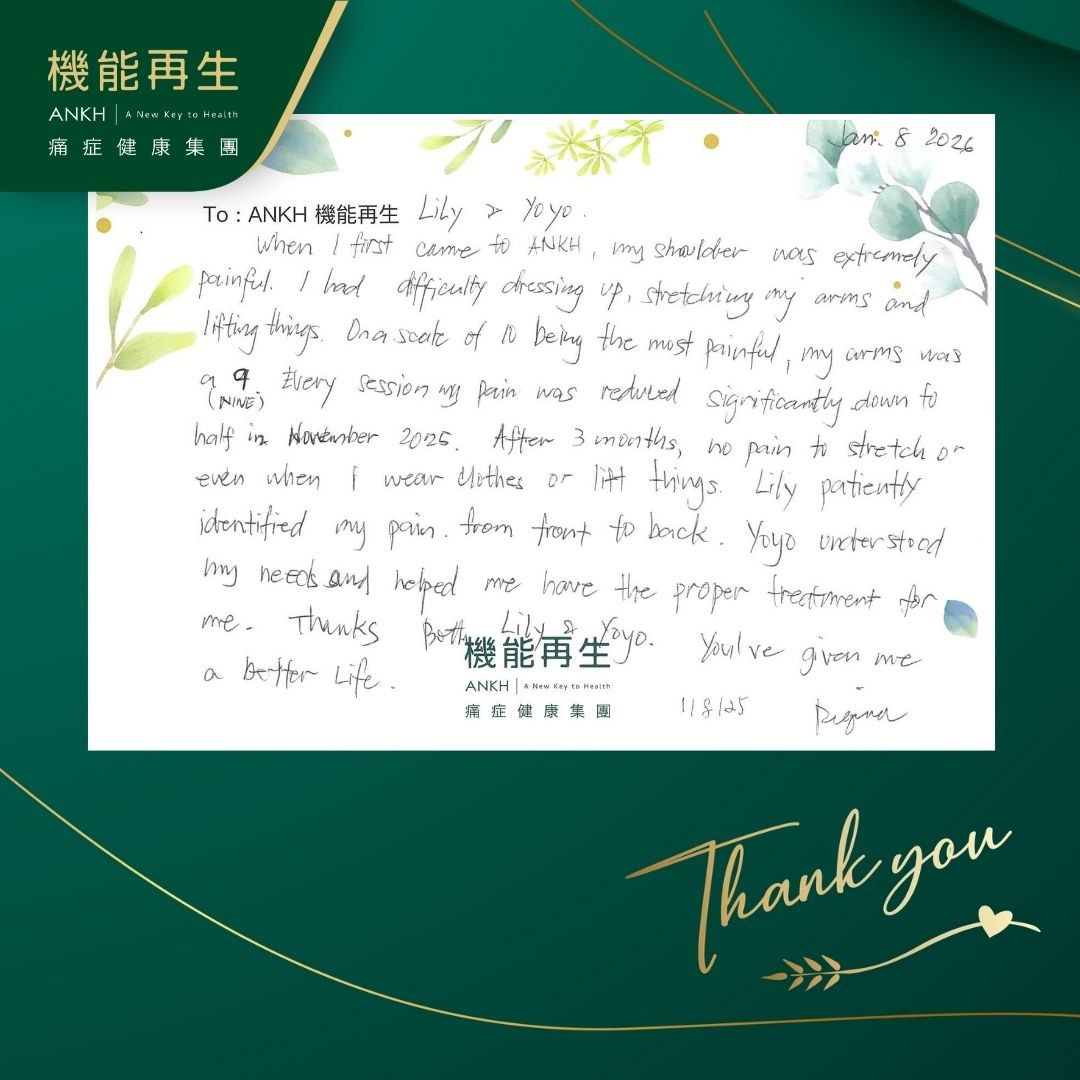 機能再生
ANKH | A New Key to Health
痛症健康集團
Jan. 8 2026
To : ANKH 機能再生 Lily & Yoyo.
When I first came to ANKH, my shoulder was extremely
painful. I had difficulty dressing up, stretching my arms and
lifting things. On a scale of 10 being the most painful, my arms was
a 9. Every session my pain was reduced significantly down to
(NINE)
half in November 2025. After 3 months, no pain to stretch or
even when I wear clothes or lift things. Lily patiently
identified my pain. from front to back. Yoyo understood
my needs and helped me have the proper treatment for
me. Thanks Both Lily & Yoyo. You've given me
a better Life.
機能再生
ANKH | A New Key to Health
痛症健康集團
1/8/25
Thank you